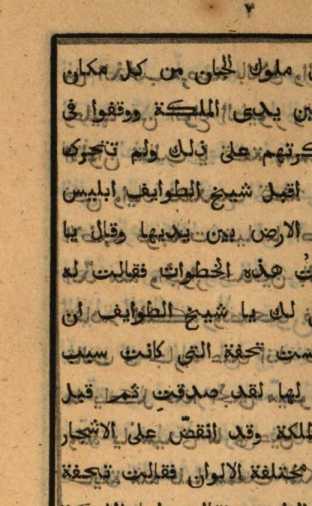 ٢
ملوك الجان من كل مكان
بين يدى الملكة ووقفوا فى
كرتهم على ذلك ولم تتحرك
اقبل شيخ الطوايف ابليس
الارض بين يديها وقال يا
هذه الخطوات فقالت له
لك يا شيخ الطوايف ان
ست تحفة التى كانت سبب
لها لقد صدقت ثم قبل
الملكة وقد انقضّ على الاشجار
مختلفة الالوان فقالت تحفة